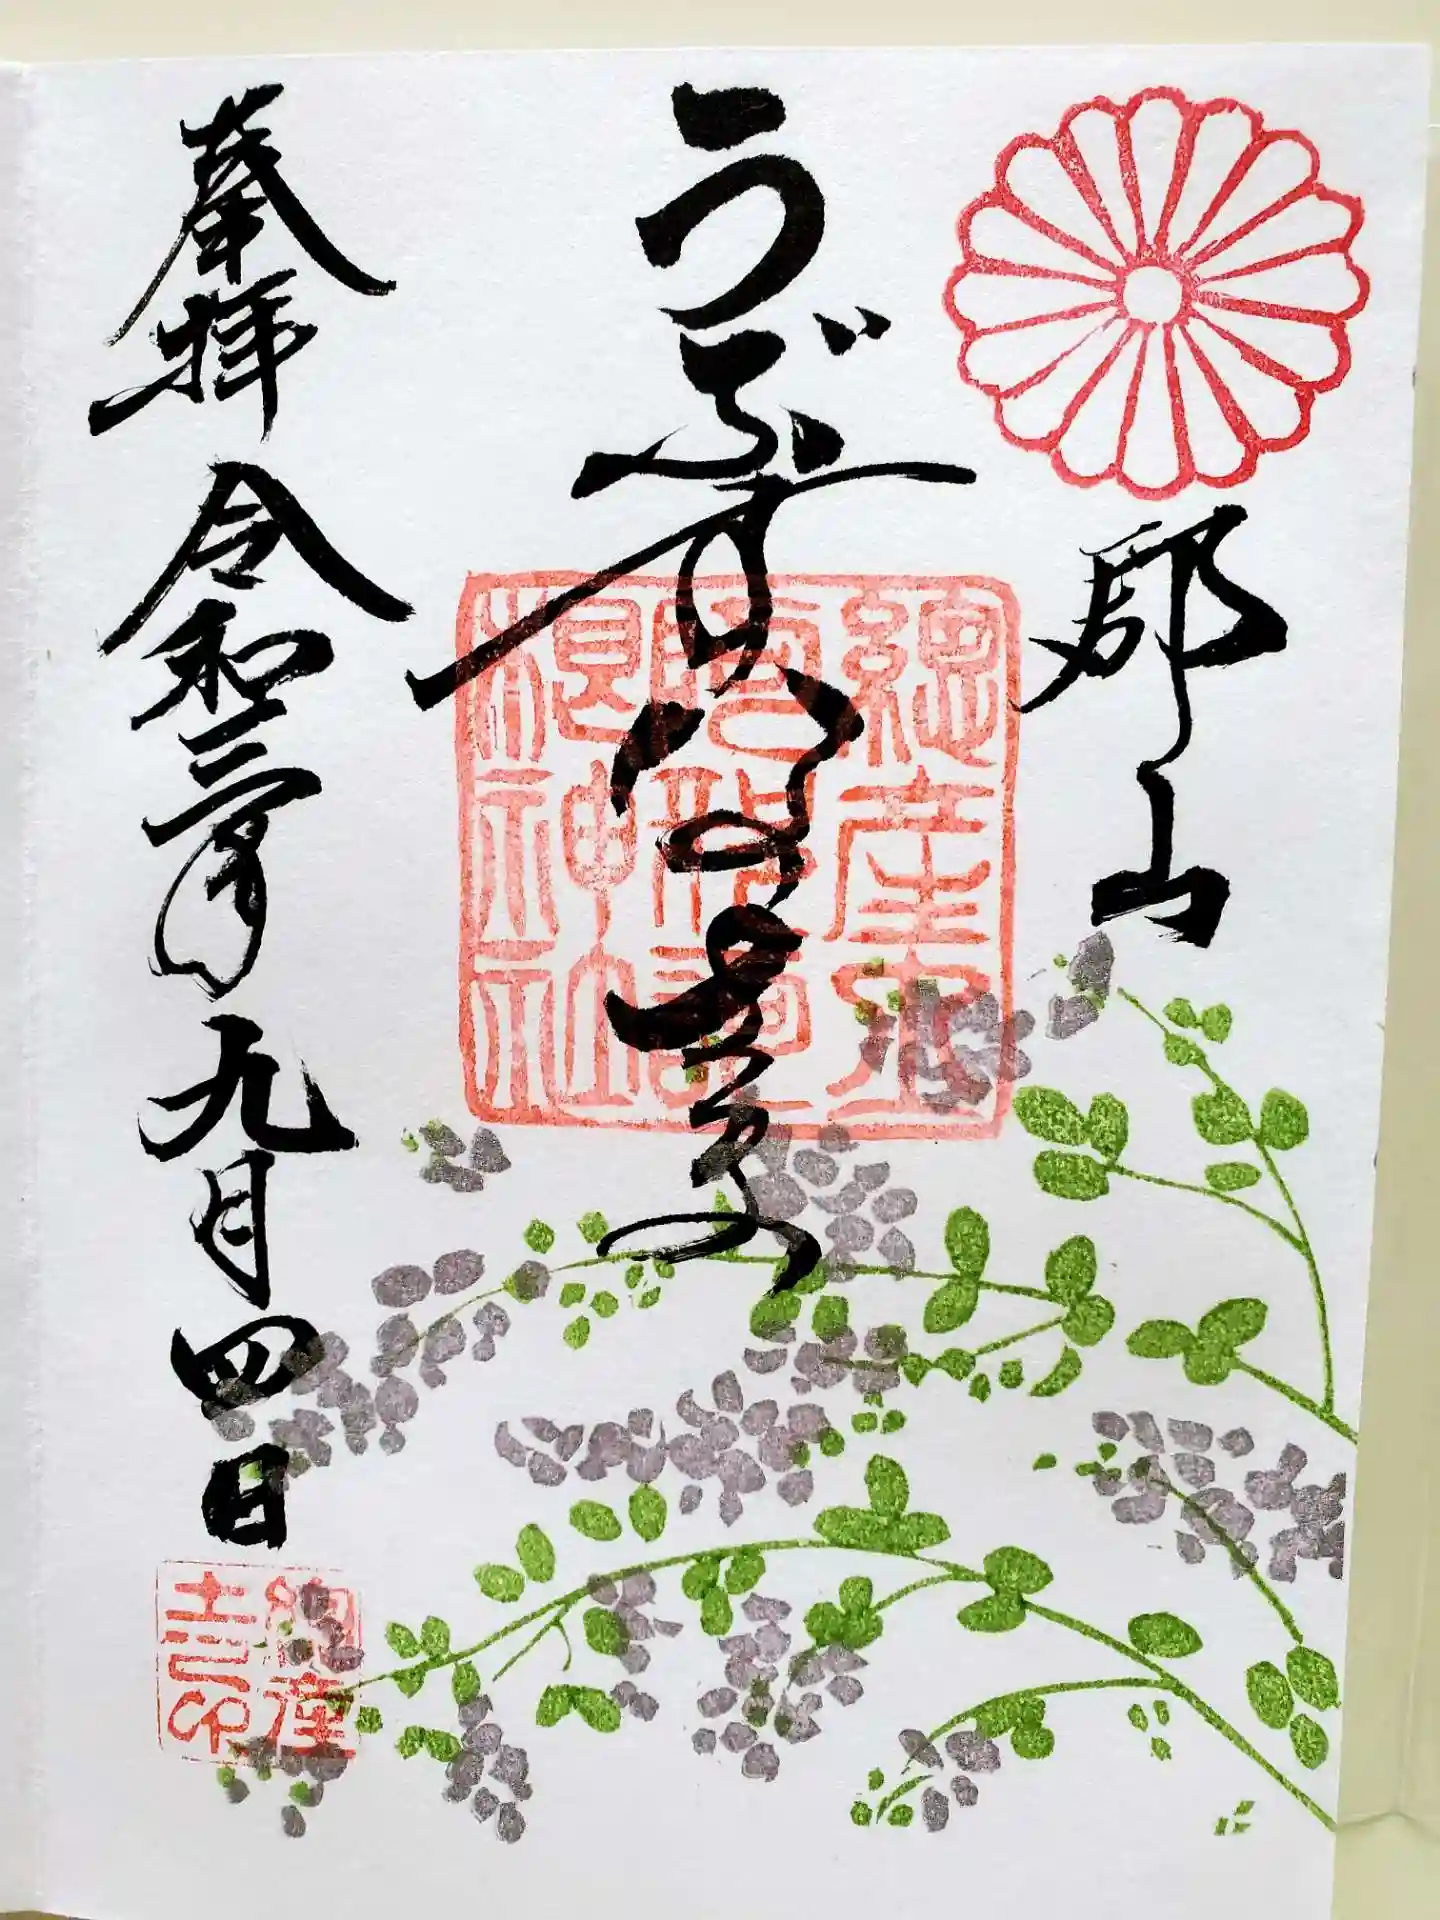 郡山
うぶすな
總産土
邪訶
根神社
奉拝 令和三年九月四日
總産
土印